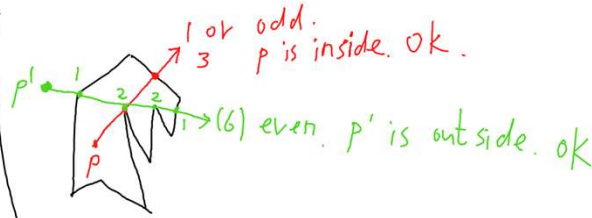 1 or odd.
3 p is inside. ok.
p' 1 2 2 1 (6) even. p' is outside. ok
p